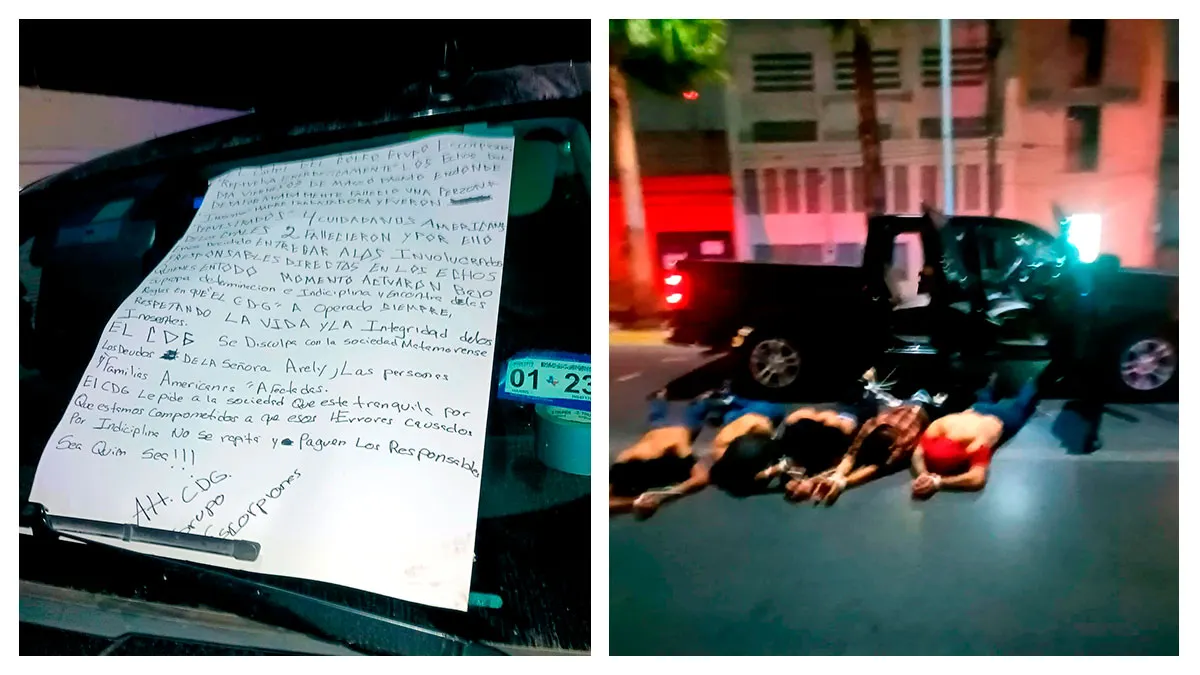 EL Cartel DEL GOLFO Grupo Escorpiones
Reprueva LOS Echos DEL
DIA VIERNES 3 DE MARZO PASADO EN DONDE
FALLECIO UNA PERZONA
TRABAJADORA Y FUERON
4 CUIDADANOS AMERICANOS
DE LOS CUALES 2 FALLECIERON Y POR ELLO
Emos Decidido ENTREGAR A LOS INVOLUCRADOS
RESPONSABLES DIRECTOS EN LOS ECHOS
QUIENES EN TODO MOMENTO ACTUARON BAJO
propia determinacion e Indiciplina y Encontra de las
Reglas en QUE "EL CDG" A Operado SIEMPRE,
RESPETANDO LA VIDA Y LA Integridad de los
Inosentes.
EL CDG Se Disculpa con la sociedad Matamorense
Los Deudos DE LA SEÑORA Arely, y Las personas
y Familias Americanas "Afectadas.
El CDG Le pide a la sociedad Que este tranquila por
Que estamos Comprometidos a que esos Errores causados
Por Indiciplina No se repita y Paguen Los Responsables
Sea Quim Sea!!!
Att. CDG.
Grupo
Escorpiones
01 23